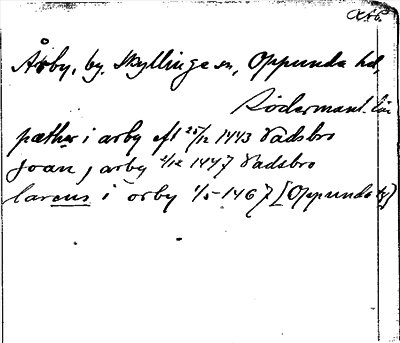 Årby, by. Skyllinge sn, Oppunda hd,
Södermanl. län
pæther i arby eft 25/12 1443 Vadsbro
Joan j arby 2/12 1447 Vadsbro
larens i orby 1/5 1467 [Oppunda